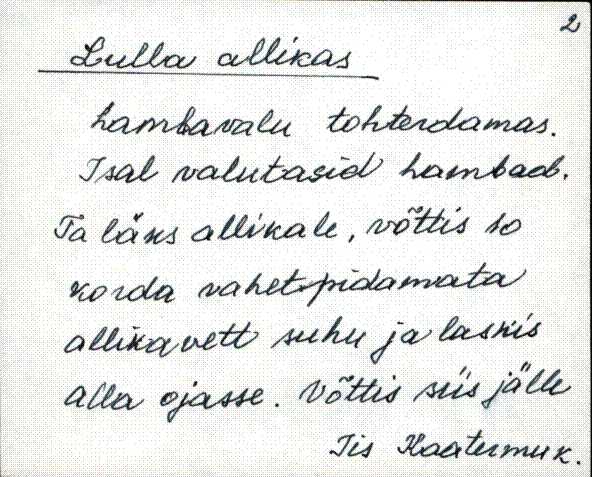 2
Lulla allikas
hambavalu tohterdamas.
Isal valutasid hambad.
Ta läks allikale, võttis 10
korda vahetpidamata
allikavett suhu ja laskis
alla ojasse. Võttis siis jälle
Iis Kaatermuk.